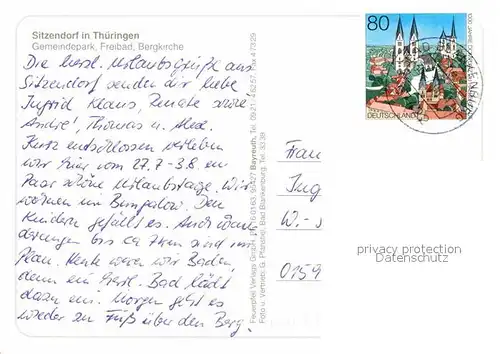 Sitzendorf in Thüringen
Gemeindepark, Freibad, Bergkirche
Die herzl. Urlaubsgrüße aus
Sitzendorf senden dir liebe
Ingrid Klaus, Renate sowie
André, Thomas u. Alex.
Kurz entschlossen verleben
wir hier vom 27.7-3.8. ein
Paar schöne Urlaubstage. Wir
wohnen im Bungalow. Den
Kindern gefällt es. Auch Wan-
derungen bis ca 7 km sind im
Plan. Heute waren wir Baden,
denn ein herrl. Bad lädt
dazu ein. Morgen geht es
wieder zu Fuß über den Berg.
Feuerpfeil Verlags GmbH, 95427 Bayreuth, Tel. 09 21
Foto u. Vertrieb: G. Pfanstiel, Bad Blankenburg, Tel. 33 39
80
DEUTSCHLAND
Frau
Ing
W.-
0159
privacy protection
Datenschutz